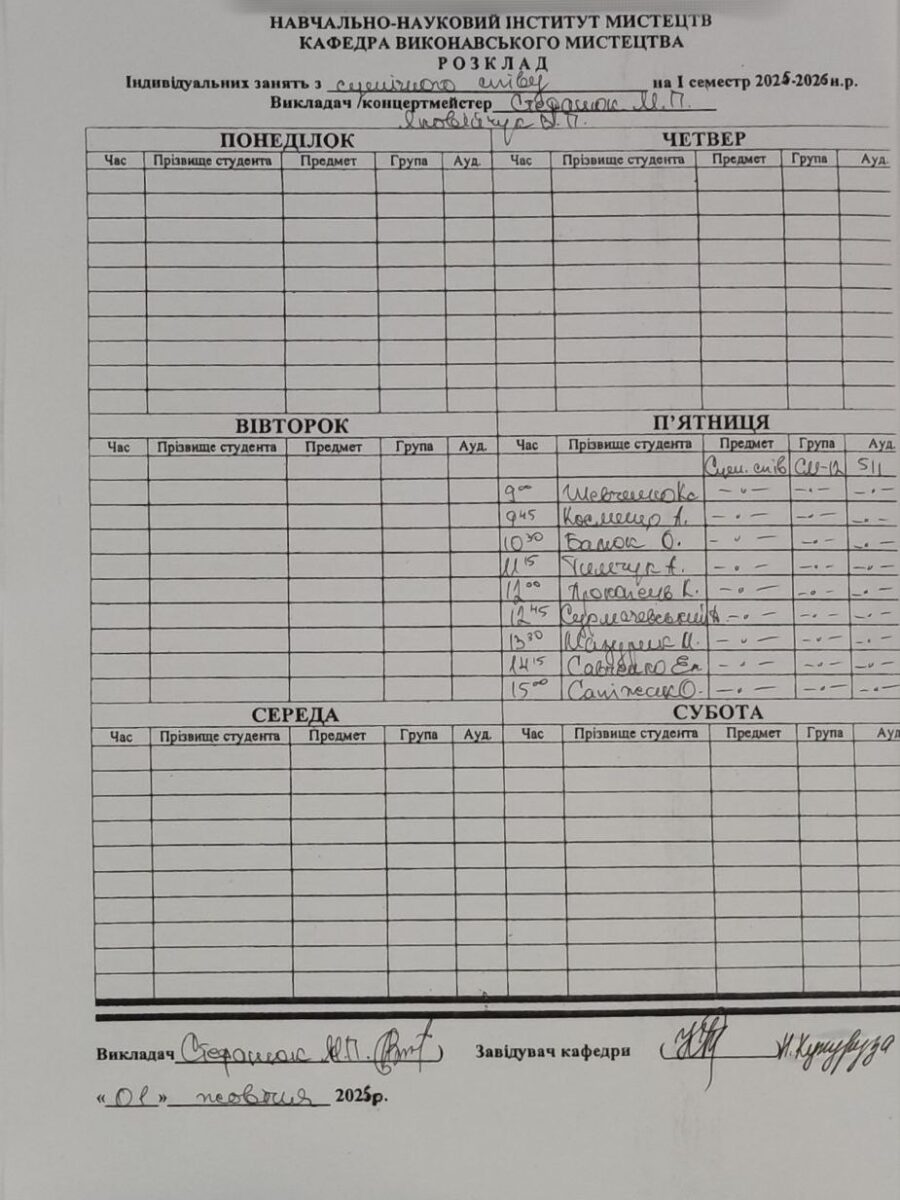 НАВЧАЛЬНО-НАУКОВИЙ ІНСТИТУТ МИСТЕЦТВ
КАФЕДРА ВИКОНАВСЬКОГО МИСТЕЦТВА
Р О З К Л А Д
Індивідуальних занять з сценічного співу на І семестр 2025-2026 н.р.
Викладач /концертмейстер Стефанюк М.П.
ПОНЕДІЛОК ЧЕТВЕР
Час Прізвище студента Предмет Група Ауд. Час Прізвище студента Предмет Група Ауд.
ВІВТОРОК П'ЯТНИЦЯ
Час Прізвище студента Предмет Група Ауд. Час Прізвище студента Предмет Група Ауд.
Сцен. спів СМ-12 511
9 00 Шевченко Кс - " - - " - - " -
9 45 Космецір А. - " - - " - - " -
10 30 Балюк О. - " - - " - - " -
11 15 Тимчук А. - " - - " - - " -
12 00 Прокопець К. - " - - " - - " -
12 45 Сурмачевський А - " - - " - - " -
13 30 Мазурик - " - - " - - " -
14 15 Савченко Ел - " - - " - - " -
15 00 Сапіжак О. - " - - " - - " -
СЕРЕДА СУБОТА
Час Прізвище студента Предмет Група Ауд. Час Прізвище студента Предмет Група Ауд
Викладач Стефанюк М.П. Завідувач кафедри
« 01 » жовтня 2025р.